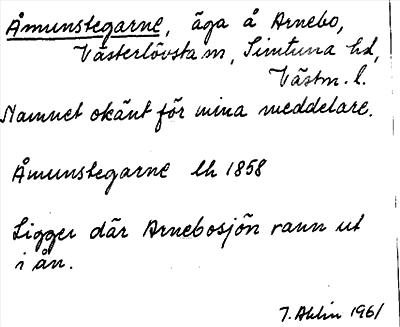 Åmunstegarne, äga å Arnebo,
Västerlövsta sn, Simtuna hd,
Västm. l.
Namnet okänt för mina meddelare.
Åmunstegarne lh 1858
Ligger där Arnebosjön rann ut
i ån.
J. Ahlin 1961